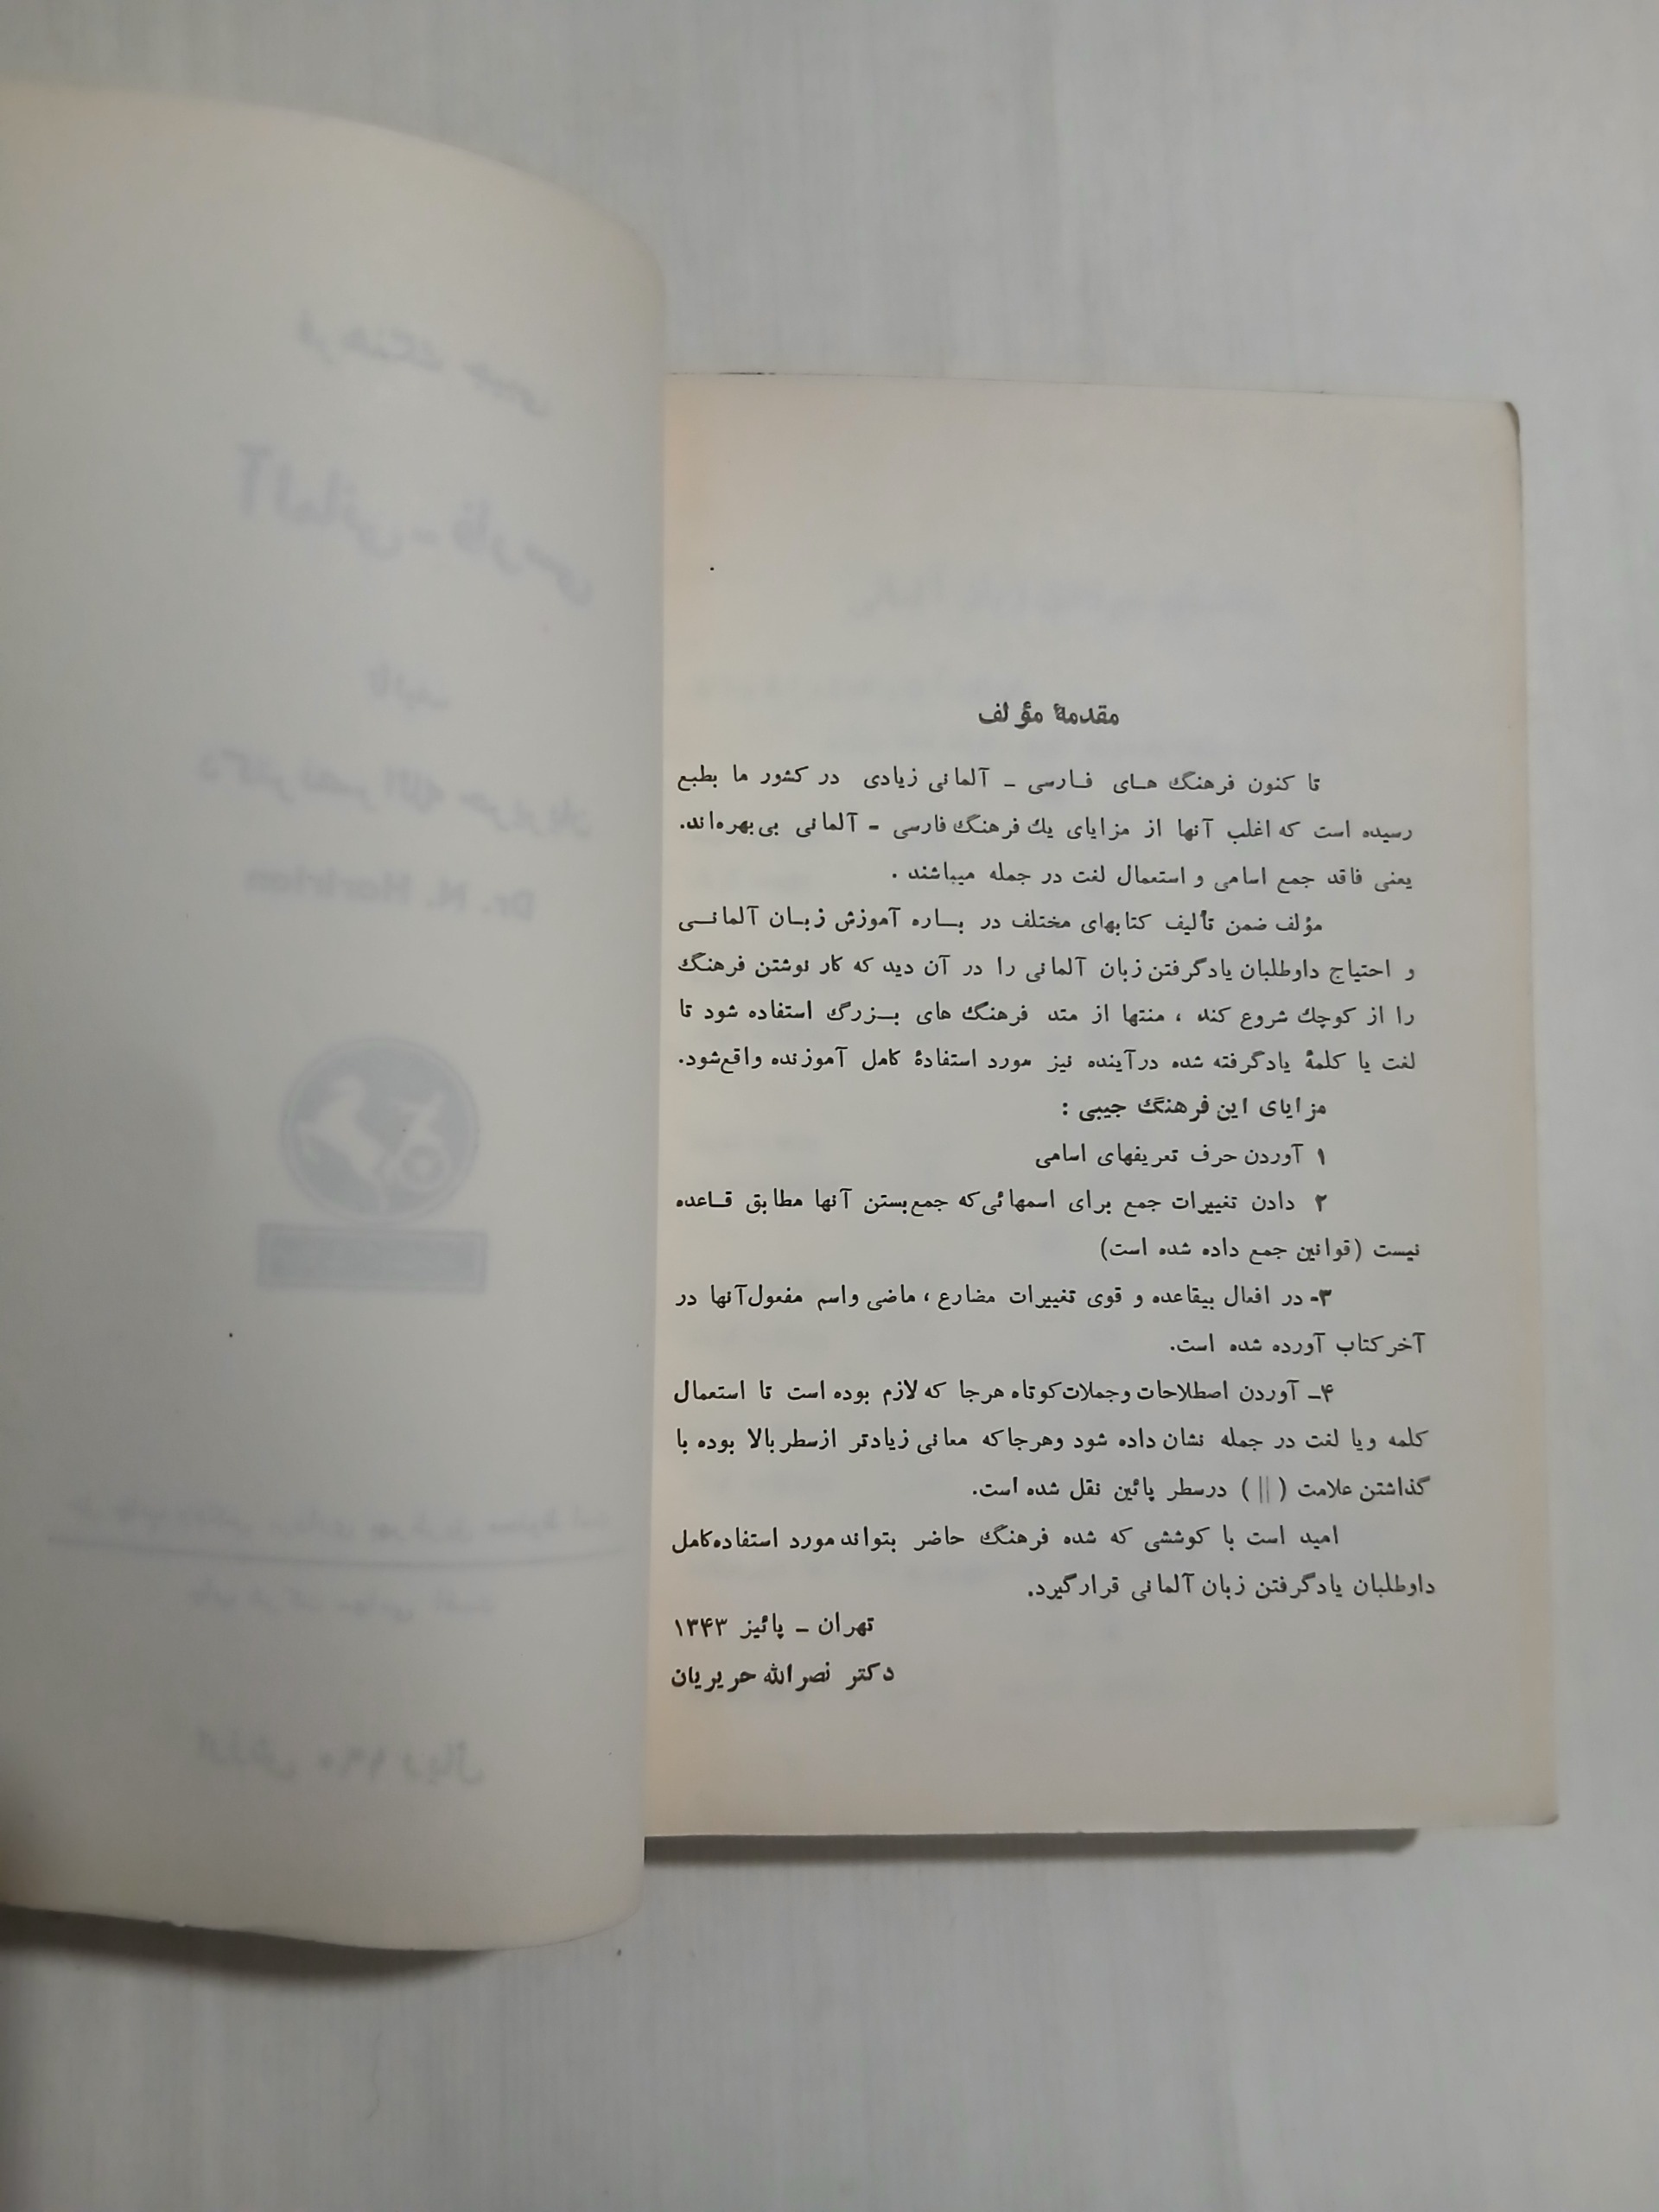 مقدمهٔ مؤلف
تا کنون فرهنگ هـای فـارسی ـ آلمانی زیادی در کشور ما بطبع
رسیده است که اغلب آنها از مزایای یك فرهنگ فارسی - آلمانی بی‌بهره‌اند.
یعنی فاقد جمع اسامی و استعمال لغت در جمله میباشند .
مؤلف ضمن تألیف کتابهای مختلف در بـاره آموزش زبـان آلمانـی
و احتیاج داوطلبان یادگرفتن زبان آلمانی را در آن دید که کار نوشتن فرهنگ
را از کوچك شروع کند ، منتها از متد فرهنگ های بـزرگ استفاده شود تا
لغت یا کلمهٔ یادگرفته شده درآینده نیز مورد استفادهٔ کامل آموزنده واقع‌شود.
مزایای این فرهنگ جیبی :
۱ آوردن حرف تعریفهای اسامی
۲ دادن تغییرات جمع برای اسمهائی‌که جمع‌بستن آنها مطابق قـاعده
نیست (قوانین جمع داده شده است)
۳- در افعال بیقاعده و قوی تغییرات مضارع ، ماضی واسم مفعول‌آنها در
آخرکتاب آورده شده است.
۴ـ آوردن اصطلاحات وجملات‌کوتاه هرجا که لازم بوده است تا استعمال
کلمه ویا لغت در جمله نشان داده شود وهرجا‌که معانی زیادتر ازسطربالا بوده با
گذاشتن علامت ( || ) درسطر پائین نقل شده است.
امید است با کوششی که شده فرهنگ حاضر بتواند مورد استفاده‌کامل
داوطلبان یادگرفتن زبان آلمانی قرارگیرد.
تهران ـ پائیز ۱۳۴۳
دکتر نصرالله حریریان